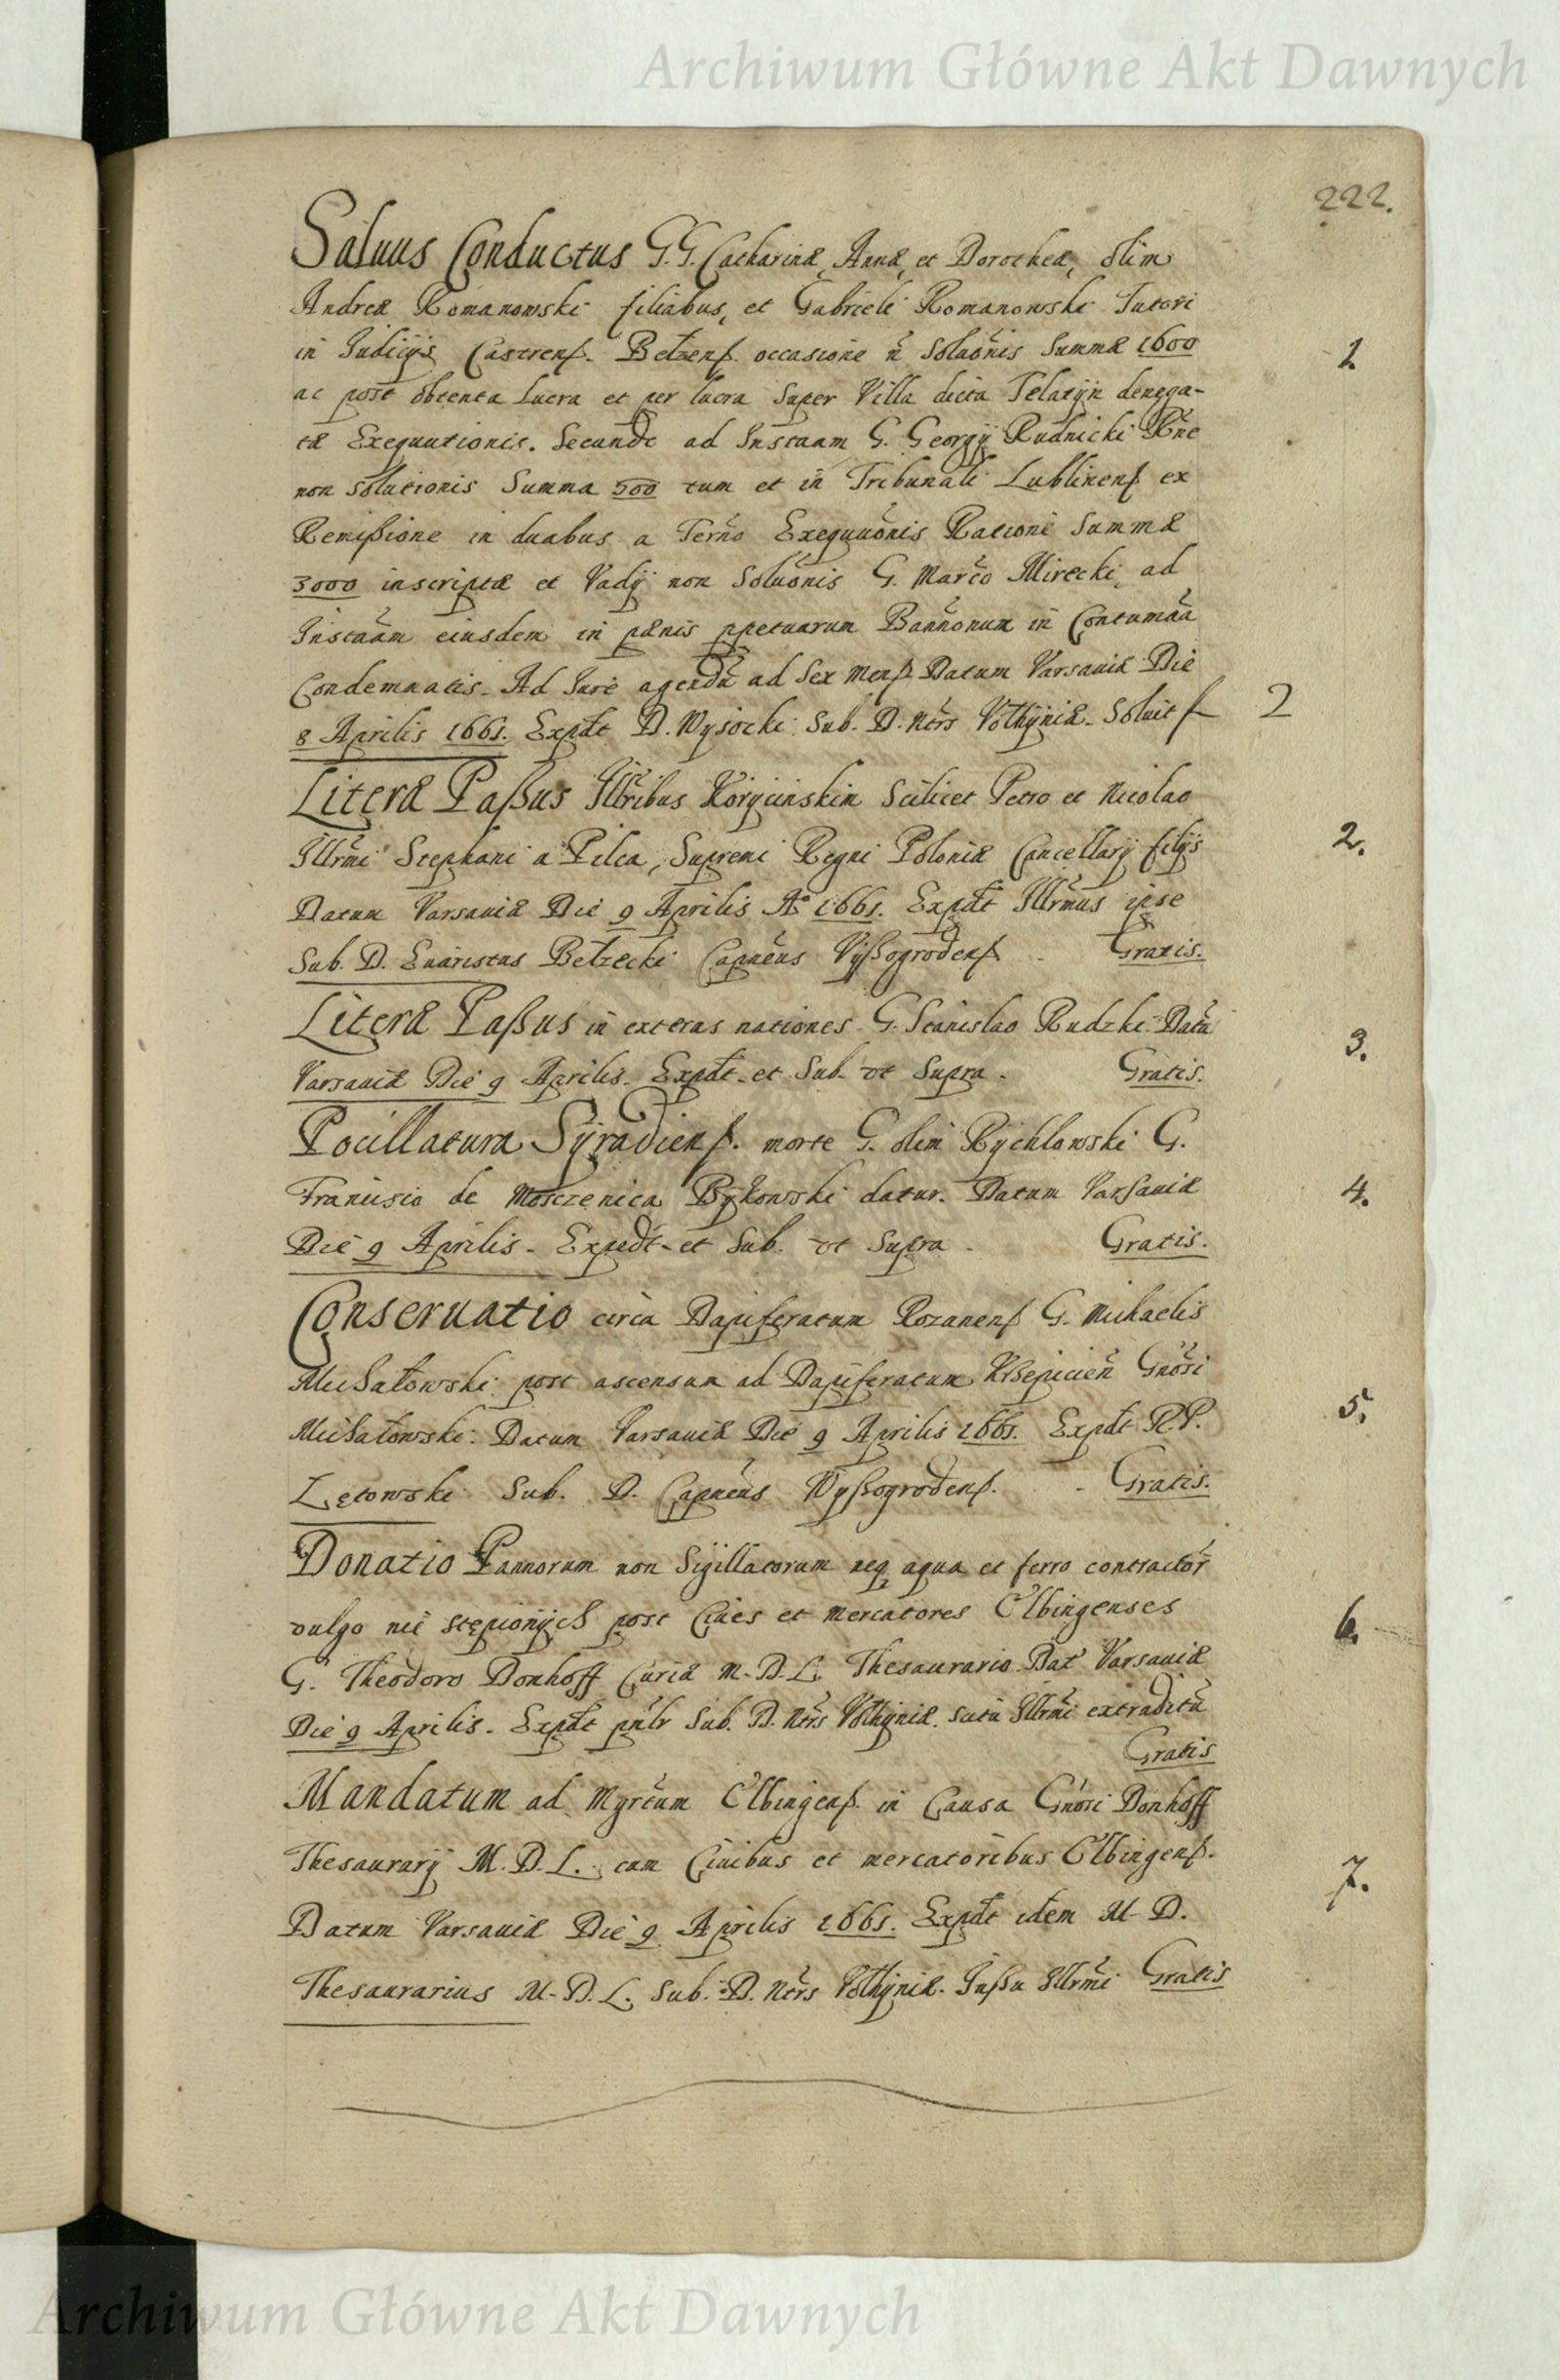 Archiwum Główne Akt Dawnych
222.
Saluus Conductus G.G. Catharinæ, Annæ, et Dorotheæ, olim
Andreæ Romanowski filiabus, et Gabrieli Romanowski Tutori
in Judicijs Castrenß. Betzenß. occasione n̄ Solaõnis Summæ 1600
1.
ac post obtenta Lucra et per lucra Super Villa dicta Telatÿn denega-
tæ Exequutionis. Secundo ad Instaam G. Georgij Rudnicki Rñe
non Solutionis Summa 500 tum et in Tribunali Lublinenß ex
Remißione in duabus a Terño Exequuõnis Ratione Summæ
3000 inscriptæ et Vadij non Soluõnis G. Marco Mirecki, ad
Instaãm eiusdem in pænis ppetuarum Bannõnum in Contumãa
Condemnatis. Ad Jure agendũ ad Sex Menß. Datum Varsauiæ Die
8 Aprilis 1661. Expdt D. Wysocki. Sub. D. Ntrs Vothÿniæ. Soluit f 2
Literæ Paßus Illribus Koryciński Scilicet Petro et Nicolao
2.
Illrmi Stephani a Pilca, Supremi Regni Poloniæ Cancellarij filijs
Datum Varsauiæ Die 9 Aprilis Aº 1661. Expdt Illrmus ipse
Sub. D. Euaristus Bełzecki Capneus Vÿßogrodenß. Gratis.
Literæ Paßus in exteras nationes G. Stanislao Rudzki. Datũ
3.
Varsauiæ Die 9 Aprilis. Expdt. et Sub. vt Supra. Gratis.
Pocillatura Sÿradienß. morte G. olim Rÿchlowski G.
Francisco de Mosczenica Bÿkowski datur. Datum Varsauiæ
4.
Die 9 Aprilis. Expedt. et Sub. vt Supra. Gratis.
Conseruatio circa Dapiferatum Rozanenß G. Michaelis
Michałowski post ascensum ad Dapiferatum Gnosi
5.
Michałowski. Datum Varsauiæ Die 9 Aprilis 1661. Expdt R.P.
Lętowski Sub. D. Capneus Wyßogrodenß. Gratis.
Donatio Pannorum non Sigillatorum neq aqua et ferro contractor̃
vulgo nie stępionych post Ciues et Mercatores Elbingenses
6.
G. Theodoro Donhoff Curiæ M. D. L. Thesaurario. Dat Varsauiæ
Die 9 Aprilis. Expdt pnlr Sub. D. Ntrs Vothÿniæ. scitu Illrmi extraditũ
Gratis
Mandatum ad Mgrtum Elbingenß. in Causa Gnosi Donhoff
Thesaurarij M. D. L. cum Ciuibus et mercatoribus Elbingenß.
7.
Datum Varsauiæ Die 9 Aprilis 1661. Expdt idem M. D.
Thesaurarius M. D. L. Sub. D. Ntrs Vothÿniæ. Jußu Illrmi Gratis
Archiwum Główne Akt Dawnych